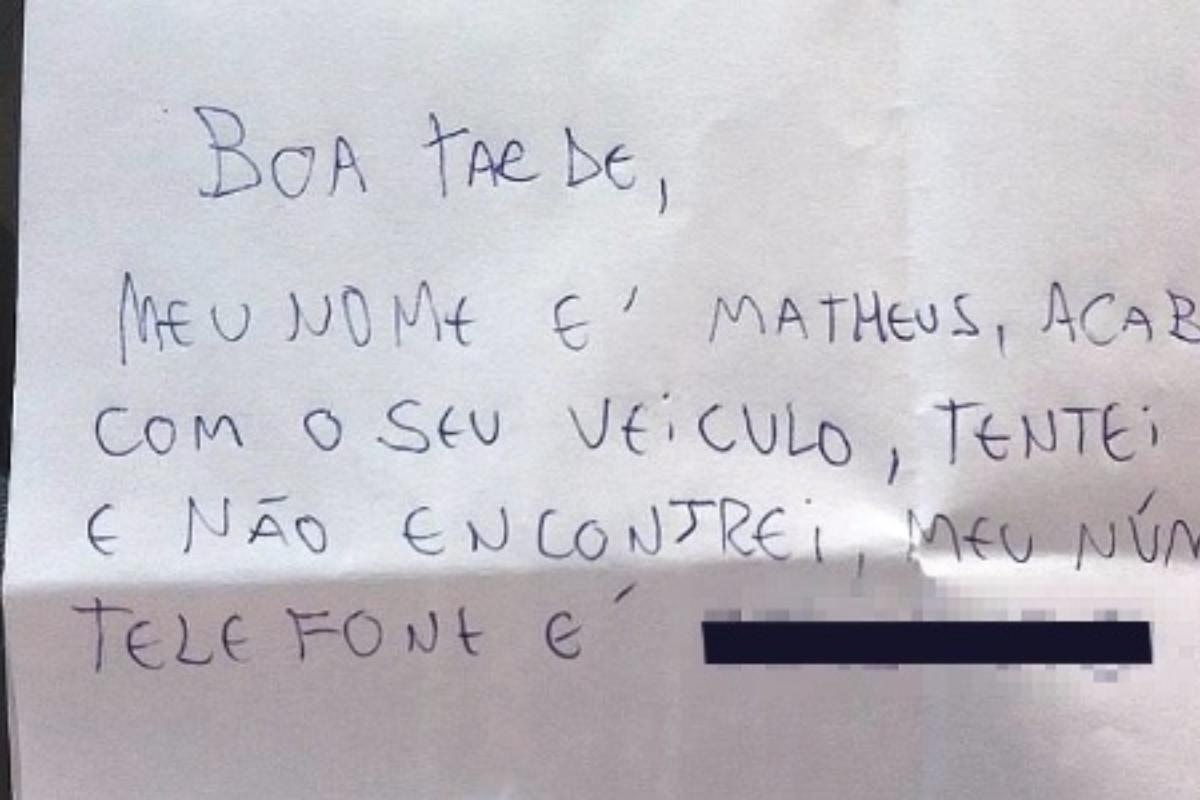 BOA TARDE,
MEU NOME É MATHEUS, ACAB
COM O SEU VEÍCULO, TENTEI
E NÃO ENCONTREI, MEU NÚM
TELEFONE É